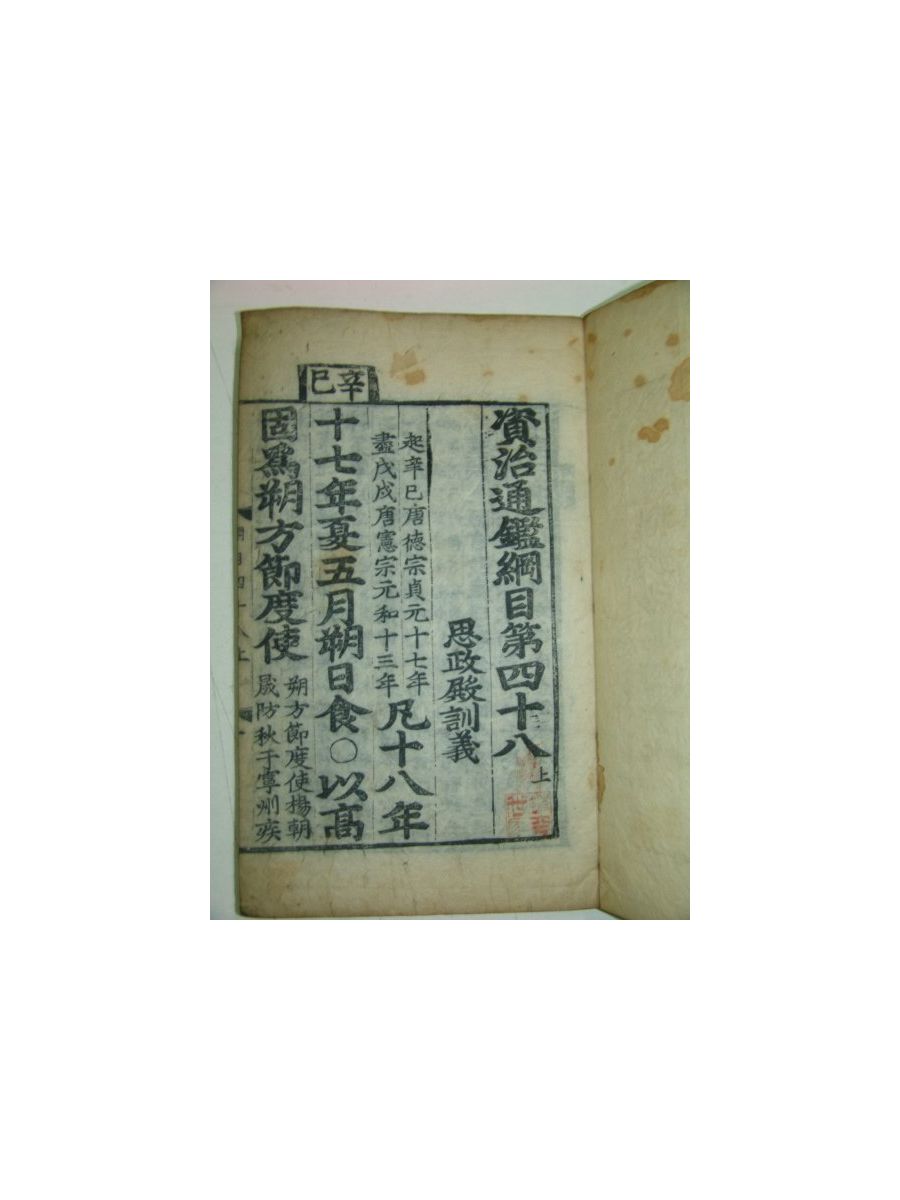 資治通鑑綱目第四十八上
思政殿訓義
起辛巳唐德宗貞元十七年
盡戊戌唐憲宗元和十三年
凡十八年
辛巳
十七年夏五月朔日食○以高
固爲朔方節度使
朔方節度使楊朝
晟防秋于寧州疾
綱目四十八上